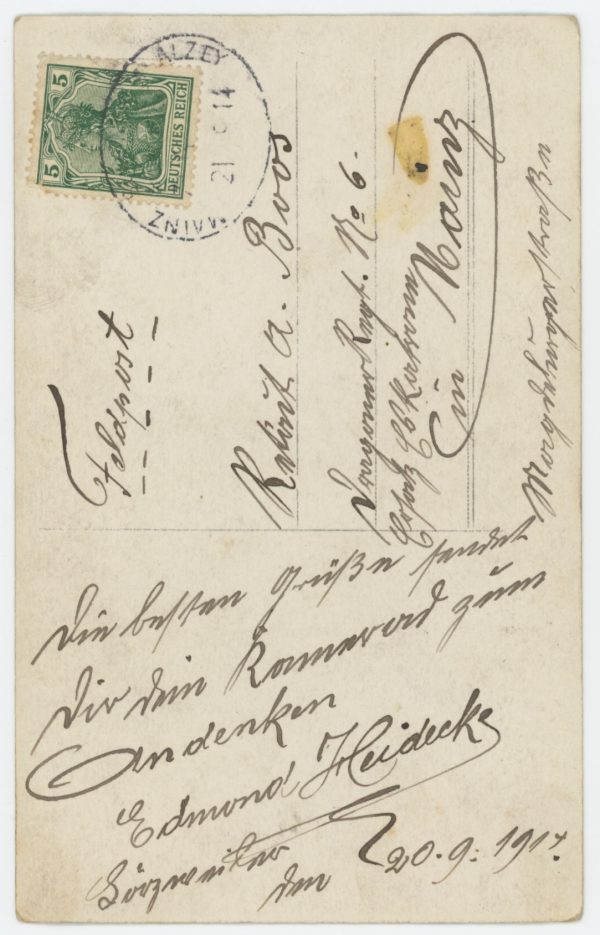 5
5
DEUTSCHES REICH
ALZEY
21 9 14
MAINZ
Feldpost
Rekrut A. Boos
Dragoner Regt. No 6.
Ersatz Eskatrone
in Mainz
Die besten Grüße sendet
Dir dein Kamerad zum
Andenken
Edmond Heidecke
Lörzweiler
den 20.9. 1914.